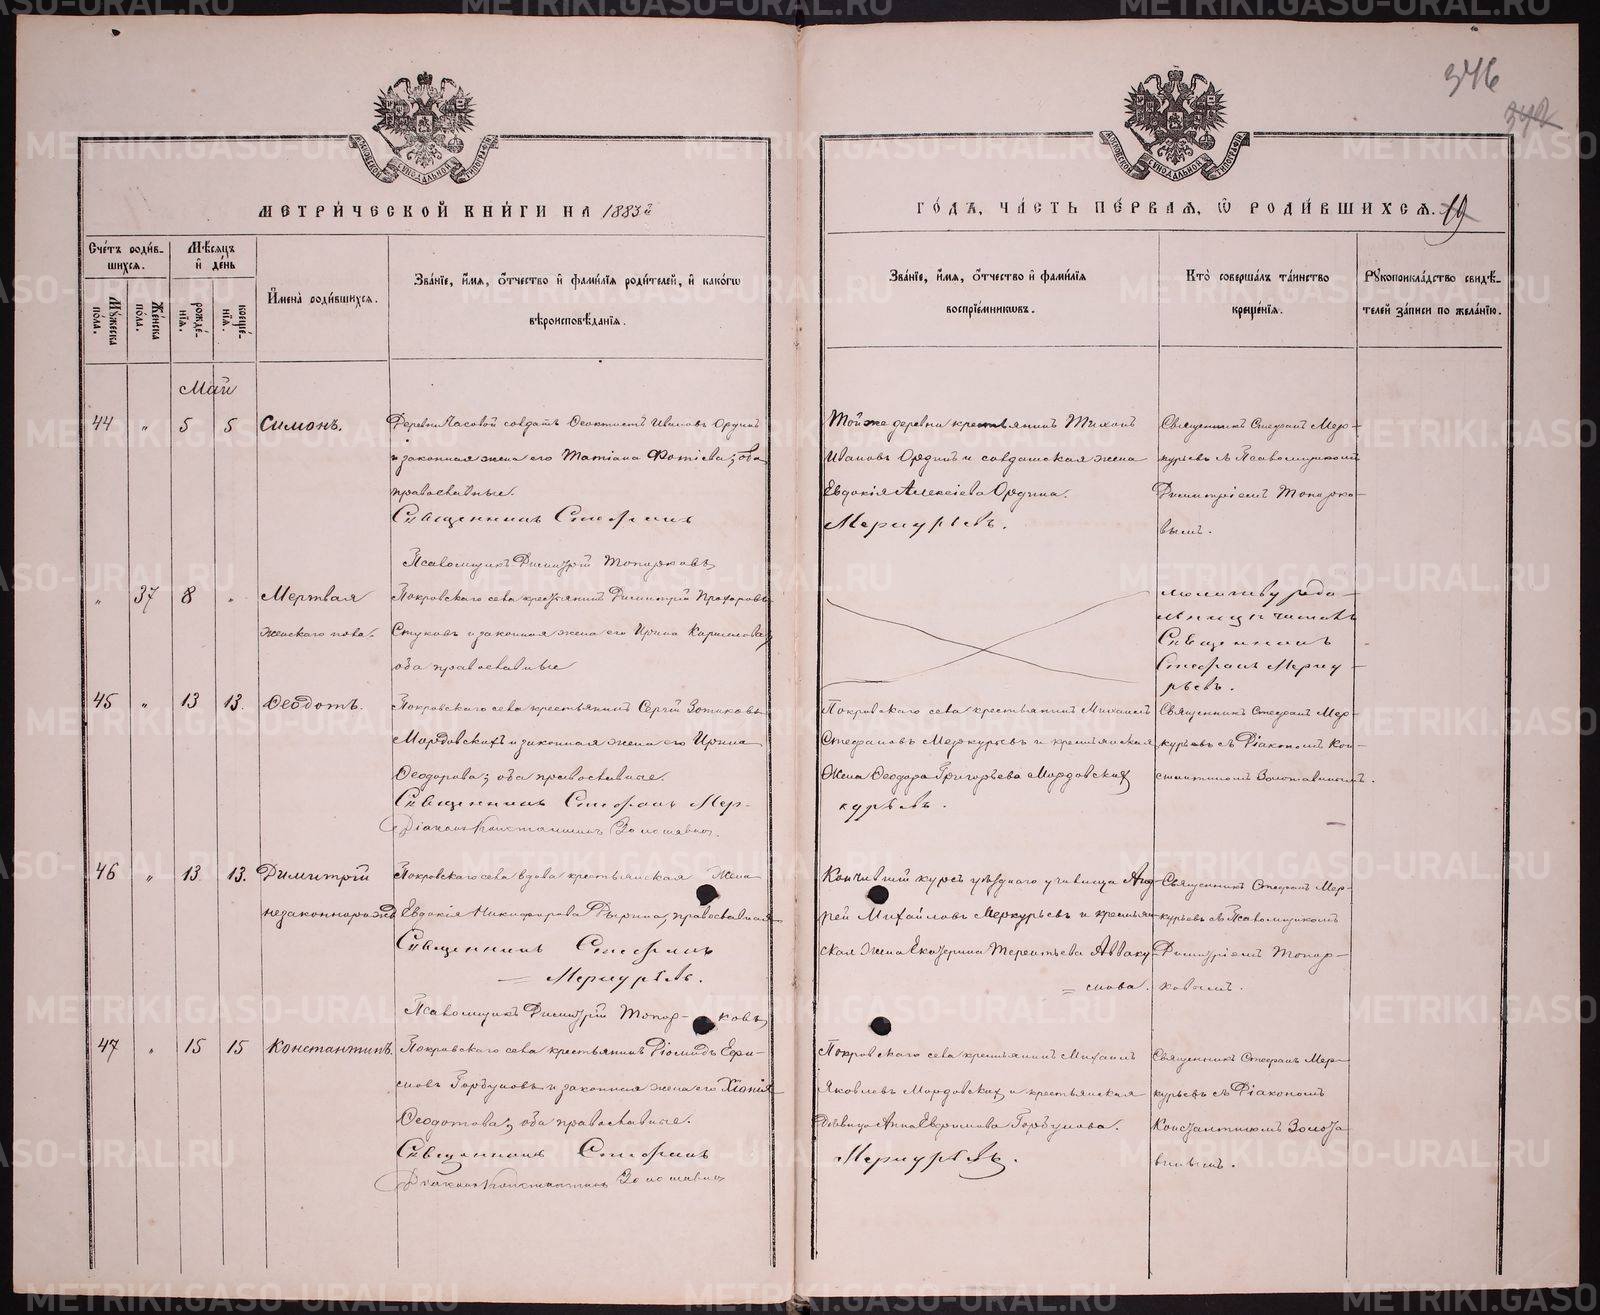 346
342
МЕТРИ́ЧЕСКОЙ КНИ́ГИ НА 1883й
ГО́ДЪ, ЧА́СТЬ ПЕ́РВАЯ, Ѡ РОДИ́ВШИХСЯ. 19
МОСКОВСКОЙ СѴНОДАЛЬНОЙ ТИПОГРАФІИ
МОСКОВСКОЙ СѴНОДАЛЬНОЙ ТИПОГРАФІИ
Сче́тъ роди́в-
шихся.
Мѣ́сяцъ
и҆ де́нь
И҆мена̀ роди́вшихся.
Зва́нїе, и҆́мя, ѻ҆́тчество и҆ фами́лїя роди́телей, и҆ како́гѡ
вѣроисповѣ́данїя.
Мꙋ́жеска
по́ла.
Же́нска
по́ла.
рожде́-
нїя.
креще́-
нїя.
Зва́нїе, и҆́мя, ѻ҆́тчество и҆ фами́лїя
воспрїе́мникѡвъ.
Кто̀ соверша́лъ та́инство
креще́нїя.
Рꙋкоприкла́дство свидѣ́-
телей за́писи по жела́нїю.
Май
44 „ 5 5 Симонъ.
Деревни Часовой солдатъ Ѳеоктистъ Ивановъ Ординъ
и законная жена его Татіана Фотіева; оба
православные.
Священникъ Стефанъ
Меркурьевъ.
Псаломщикъ Димитрій Топорковъ
Той же деревни крестьянинъ Тихонъ
Ивановъ Ординъ и солдатская жена
Евдокія Алексіева Ордина.
Священникъ Стефанъ Мер-
курьевъ съ Псаломщикомъ
Димитріемъ Топорко-
вымъ.
„ 37 8 „ Мертвая
женскаго пола.
Покровскаго села крестьянинъ Димитрій Прохоровъ
Стуковъ и законная жена его Ирина Кариллова,
оба православные
Молитву роди-
льницѣ читалъ
Священникъ
Стефанъ Мерку-
рьевъ.
45 „ 13 13. Ѳеодотъ.
Покровскаго села крестьянинъ Сергій Зотиковъ
Мордовскихъ и законная жена его Ирина
Ѳеодорова; оба православные.
Священникъ Стефанъ Мер-
курьевъ.
Діаконъ Константинъ Золотавинъ.
Покровскаго села крестьянинъ Михаилъ
Стефановъ Меркурьевъ и крестьянская
жена Ѳеодора Григорьева Мордовскихъ
Священникъ Стефанъ Мер-
курьевъ съ Діакономъ Кон-
стантиномъ Золотавинымъ.
46 „ 13 13. Димитрій
незаконнорожд.
Покровскаго села вдова крестьянская жена
Евдокія Никифорова, православная
Священникъ Стефанъ
= Меркурьевъ.
Псаломщикъ Димитрій Топор- ковъ
Кончившій курсъ уѣзднаго училища Анд-
рей Михайловъ Меркурьевъ и крестьян-
ская жена Екатерина Терентьева Авваку-
= мова.
Священникъ Стефанъ Мер-
курьевъ съ Псаломщикомъ
Димитріемъ Топор-
ковымъ.
47 „ 15 15 Константинъ.
Покровскаго села крестьянинъ Діомидъ Ефи-
мовъ Горбуновъ и законная жена его Хіонія
Ѳеодотова; оба православные.
Священникъ Стефанъ
Меркурьевъ.
Діаконъ Константинъ Золотавинъ
Покровскаго села крестьянинъ Михаилъ
Яковлевъ Мордовскихъ и крестьянская
дѣвица Анна Евфимова Горбунова.
Священникъ Стефанъ Мер-
курьевъ съ Діакономъ
Константиномъ Золота
винымъ.
METRIKI.GASO-URAL.RU